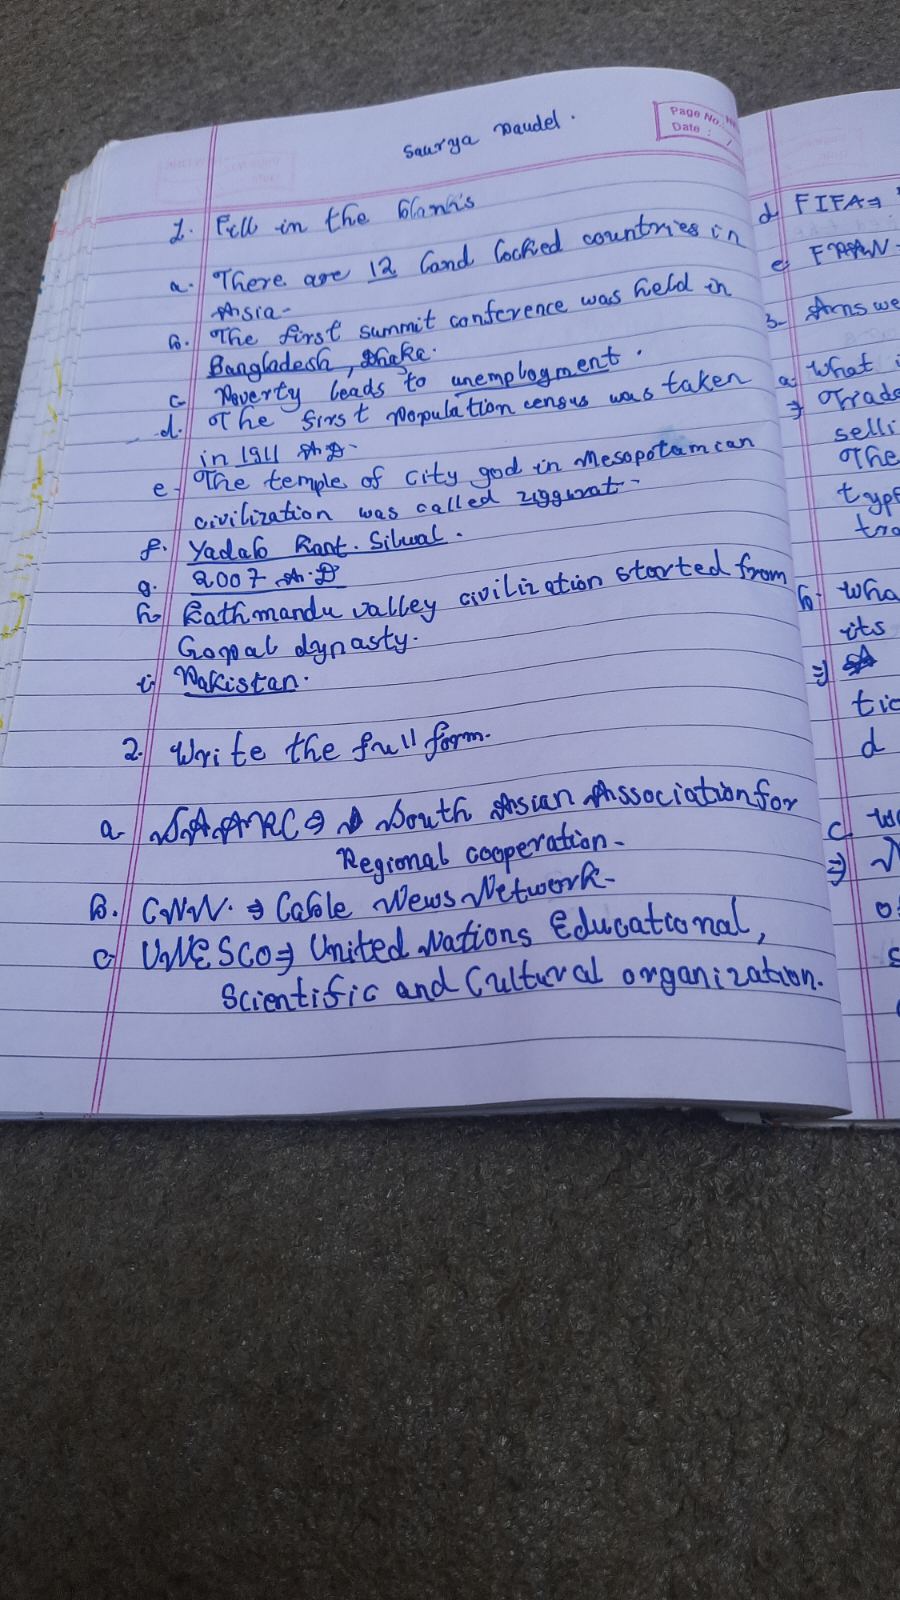 Saurya Paudel.
Page No.
Date : /
1. Fill in the blanks
a. There are 12 land locked countries in
Asia.
b. The first summit conference was held in
Bangladesh, Dhaka.
c. Poverty leads to unemployment.
d. The first population census was taken
in 1911 A.D.
e. The temple of city god in Mesopotamican
civilization was called ziggurat.
f. Yadab Kant. Silwal.
g. 2007 A.D
h. Kathmandu valley civilization started from
Gopal dynasty.
i. Pakistan.
2. Write the full form.
a. SAARC ⇒ South Asian Association for
Regional cooperation.
B. CNN. ⇒ Cable News Network.
c. UNESCO ⇒ United Nations Educational,
Scientific and Cultural organization.
d FIFA ⇒
e
3- Answe
a. What i
⇒ Trade
selli
The
type
tra
b. Wha
its
⇒
tic
d
c
⇒